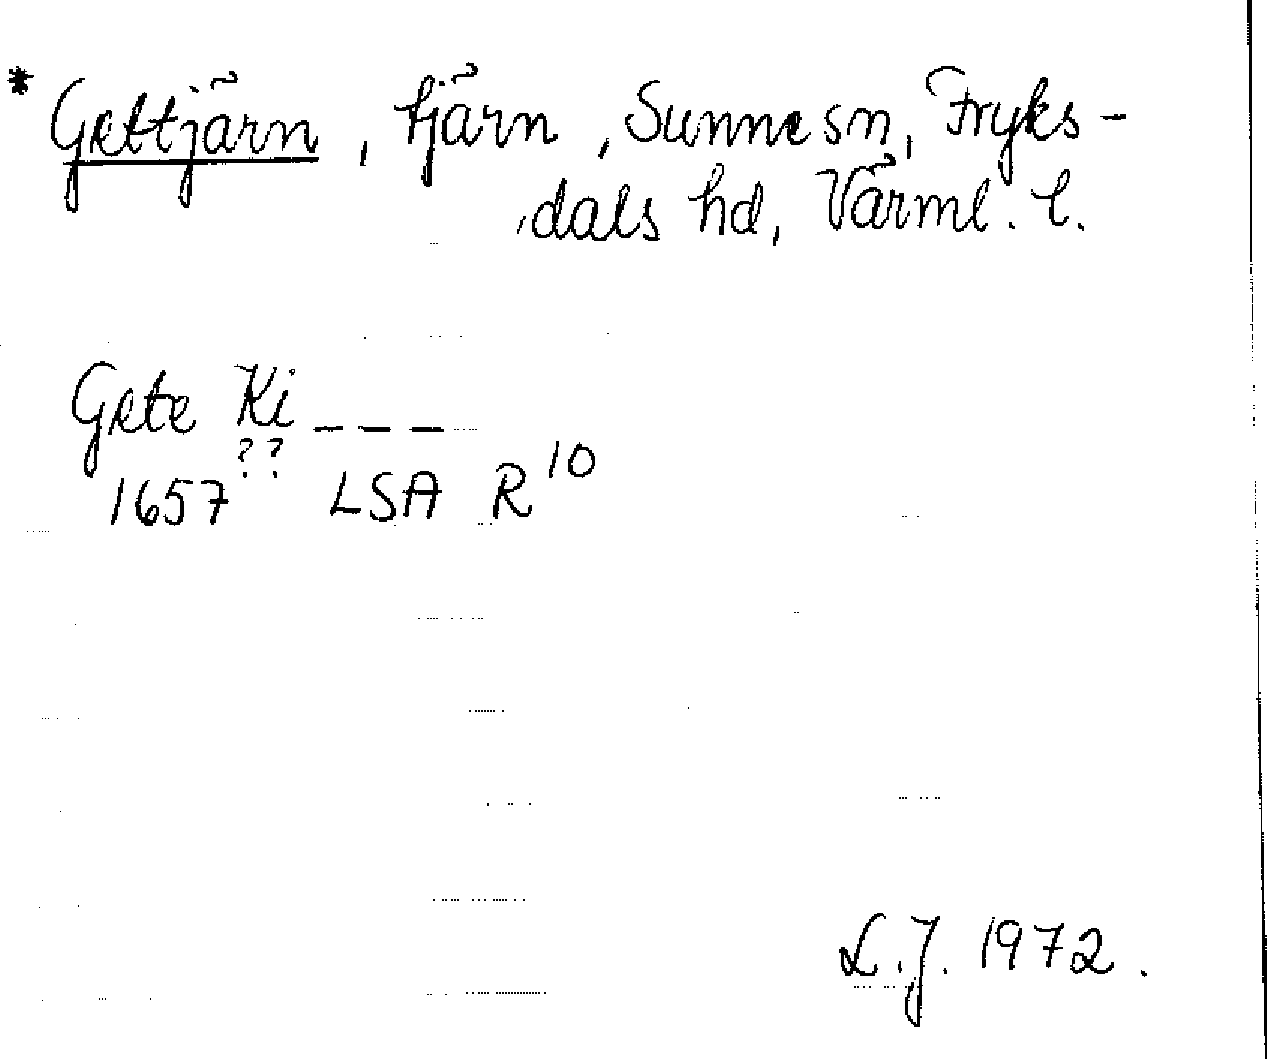 * Gettjärn, tjärn, Sunne sn, Fryks-
dals hd, Värml. l.
Gete Ki ---
??
1657 LSA R 10
L.J. 1972.